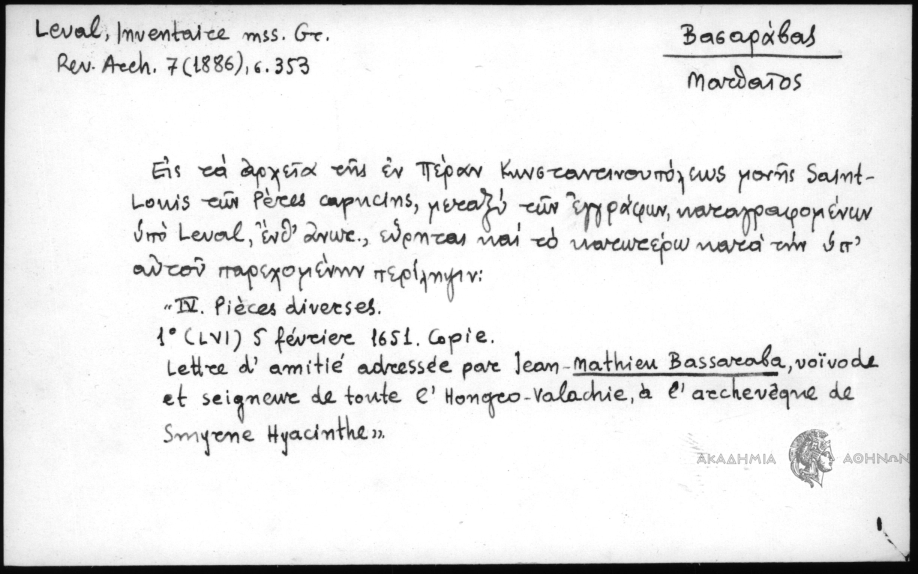 Leval, Inventaire mss. Gr.
Rev. Arch. 7 (1886), σ. 353
Βασαράβας
Ματθαῖος
Εἰς τὰ ἀρχεῖα τῆς ἐν Πέραν Κωνσταντινουπόλεως μονῆς Saint-
Louis τῶν Pères capucins, μεταξὺ τῶν ἐγγράφων, καταγραφομένων
ὑπὸ Leval, ἔνθ' ἀνωτ., εὕρηται καὶ τὸ κατωτέρω κατὰ τὴν ὑπ'
αὐτοῦ παρεχομένην περίληψιν:
"IV. Pièces diverses.
1° (LVI) 5 février 1651. Copie.
Lettre d'amitié adressée par Jean-Mathieu Bassaraba, voïvode
et seigneur de toute l'Hongro-Valachie, à l'archevêque de
Smyrne Hyacinthe».
ΑΚΑΔΗΜΙΑ ΑΘΗΝΩΝ